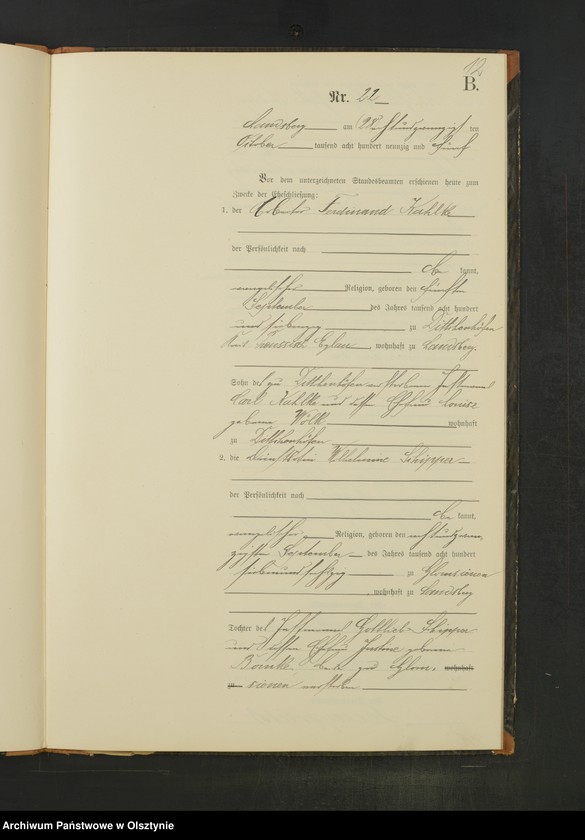 12
B.
Nr. 22
Landsberg am 28 achtundzwanzigsten
October tausend acht hundert neunzig und fünf
Vor dem unterzeichneten Standesbeamten erschienen heute zum
Zwecke der Eheschließung:
1. der Arbeiter Ferdinand Kahlke
der Persönlichkeit nach
be kannt,
evangelischer Religion, geboren den fünften
September des Jahres tausend acht hundert
und siebenzig zu Ditthenhöfen
Kreis Preussisch Eylau, wohnhaft zu Landsberg,
Sohn des zu verstorbenen Instmann
Carl Kahlke und dessen Ehefrau Louise
geborene Wölk wohnhaft
zu
2. die Wilhelmine Schipper
der Persönlichkeit nach
be kannt,
evangelischer Religion, geboren den achtundzwan
zigsten September des Jahres tausend acht hundert
siebenundsechszig zu Glomsienen
, wohnhaft zu Landsberg
Tochter des Instmann Gottlieb Schipper
und dessen Ehefrau Justine geborene
zu Glom, wohnhaft
zu sienen verstorben
Archiwum Państwowe w Olsztynie